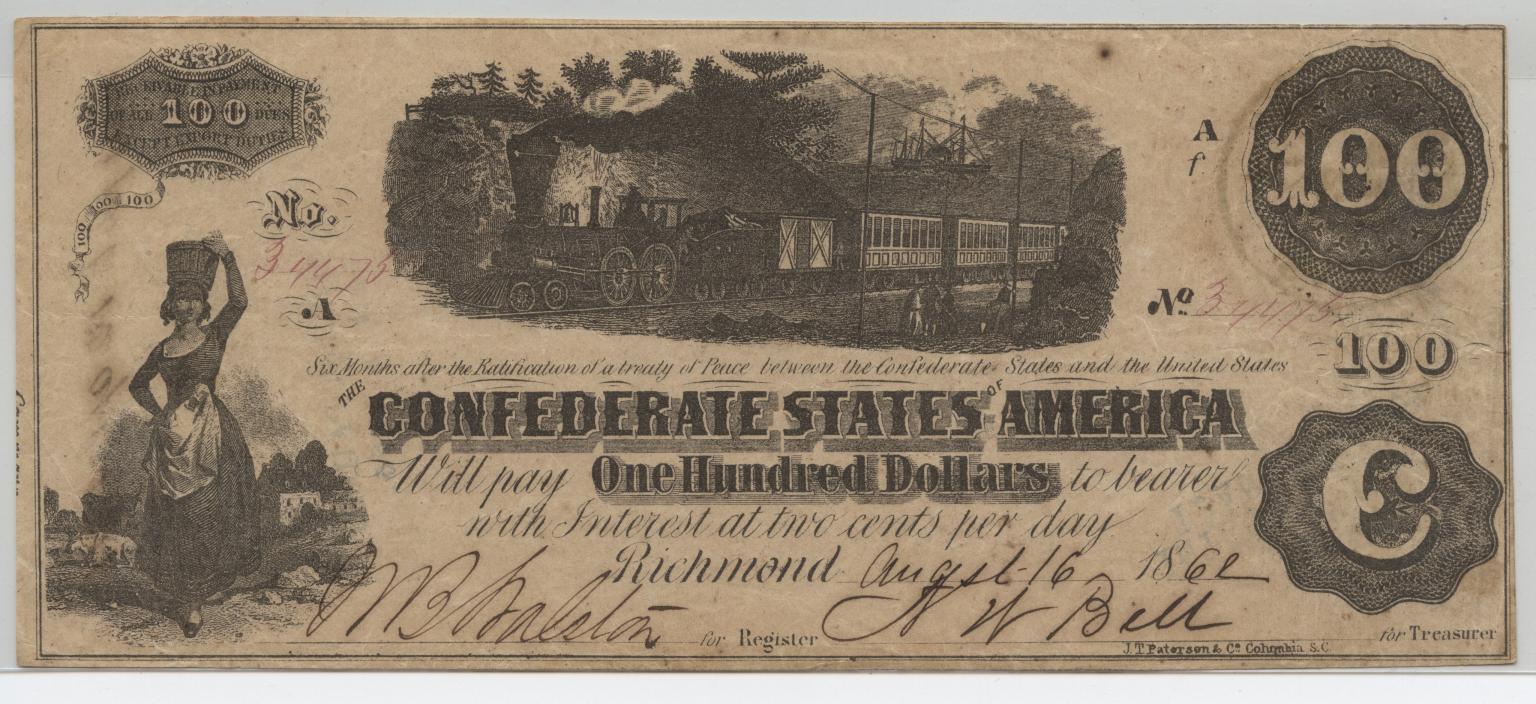 RECEIVABLE IN PAYMENT
OF ALL 100 DUES
EXCEPT EXPORT DUTIES
100 100 100
No.
34475
A
A
f
100
No. 34475
100
Six Months after the Ratification of a treaty of Peace between the Confederate States and the United States
THE CONFEDERATE STATES OF AMERICA
Will pay One Hundred Dollars to bearer
with Interest at two cents per day
Richmond August 16 1862
C
for Register
for Treasurer
J.T. Paterson & Co Columbia S.C.